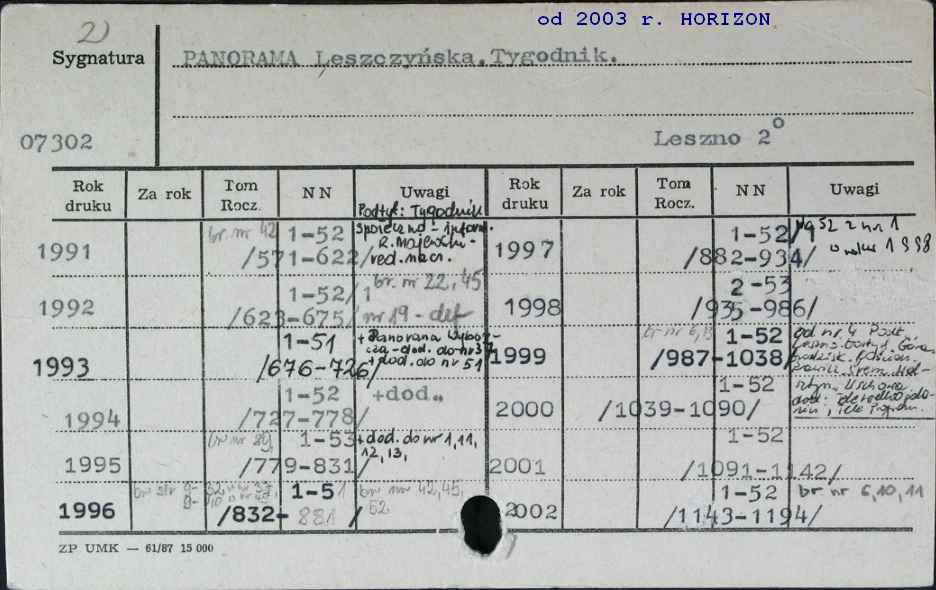 od 2003 r. HORIZON
2)
Sygnatura
PANORAMA Leszczyńska. Tygodnik.
07302
Leszno 2°
Rok druku Za rok Tom Rocz. NN Uwagi Rok druku Za rok Tom Rocz. NN Uwagi
Podtyt: Tygodnik
społeczno-inform.
R. Majewski-
red. nacz.
1991 br. nr 42 1-52
/571-622/
1992 1-52/1 br. nr 22, 45
/623-675/ nr 19 - def
1993 1-51 + Panorama Wybor
cza-dod. do nr 37
/676-726/ + dod. do nr 51
1994 1-52 +dod.
/727-778/
1995 br nr 29 1-53 +dod. do nr 1,11,
/779-831/ 12, 13,
1996 1-51 br nr 42, 45,
/832-881/ 52
1997 1-52/ 52 z nr 1
/882-934/ 1998
1998 2-53
/935-986/
1999 br nr 6, 1-52 od nr 4 Podt
/987-1038/
2000 1-52
/1039-1090/
2001 1-52
/1091-1142/
2002 1-52 br nr 6, 10, 11
/1143-1194/
ZP UMK — 61/87 15 000